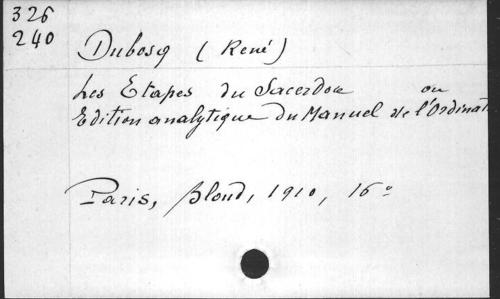 326
240
Dubosq (René)
Les Etapes du Sacerdoce ou
Edition analytique du Manuel de l'Ordinat
Paris, Bloud, 1910, 16°